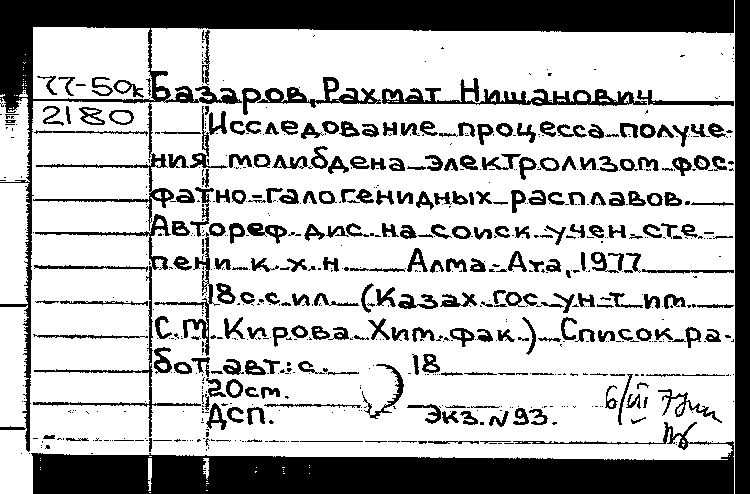 77-50к Базаров, Рахмат Нишанович
2180 Исследование процесса получе-
ния молибдена электролизом фос-
фатно-галогенидных расплавов.
Автореф. дис. на соиск. учен. сте-
пени к. х. н. Алма-Ата, 1977
18 с. с ил. (Казах. гос. ун-т им.
С.М. Кирова. Хим. фак.) Список ра-
бот авт.: с. 18
20 ст.
ДСП. Экз. N 93.
6/III 77